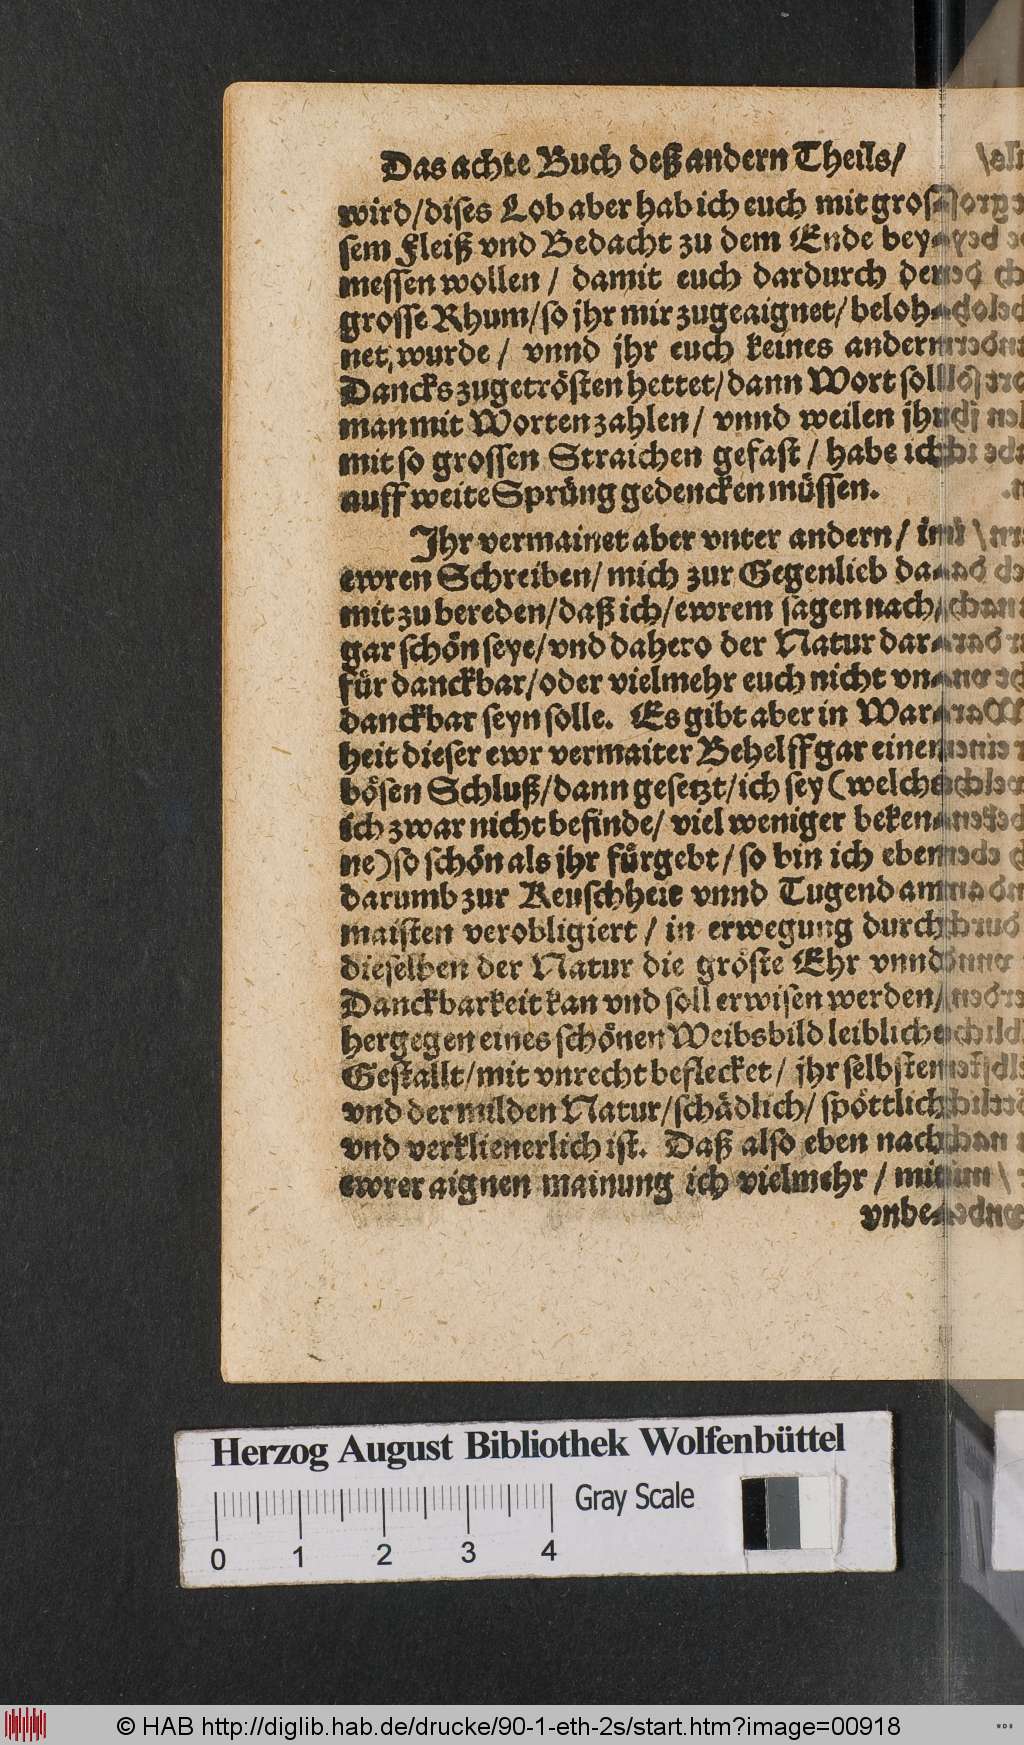 Das achte Buch deß andern Theils/
wird/dises Lob aber hab ich euch mit gros-
sem Fleiß vnd Bedacht zu dem Ende bey-
messen wollen / damit euch dardurch der
grosse Rhum/so jhr mir zugeaignet/ beloh-
net, wurde / vnnd jhr euch keines andern
Dancks zugetrösten hettet/dann Wort soll
man mit Worten zahlen/ vnnd weilen jhr
mit so grossen Straichen gefast / habe ich
auff weite Sprüng gedencken müssen.
Ihr vermainet aber vnter andern/ in
ewren Schreiben/ mich zur Gegenlieb da-
mit zu bereden/daß ich/ewrem sagen nach/
gar schön seye/vnd dahero der Natur dar-
für danckbar/oder vielmehr euch nicht vn-
danckbar seyn solle. Es gibt aber in War-
heit dieser ewr vermaiter Behelff gar einen
bösen Schluß/dann gesetzt/ich sey (welches
ich zwar nicht befinde/ viel weniger beken-
ne) so schön als jhr fürgebt/so bin ich eben
darumb zur Keuschheit vnnd Tugend am
maisten verobligiert / in erwegung durch
dieselben der Natur die gröste Ehr vnnd
Danckbarkeit kan vnd soll erwisen werden/
hergegen eines schönen Weibsbild leibliche
Gestallt/mit vnrecht beflecket/ jhr selbsten
vnd der milden Natur/schädlich/ spöttlich
vnd verklienerlich ist. Daß also eben nach
ewrer aignen mainung ich vielmehr / mit
vnbe-
Herzog August Bibliothek Wolfenbüttel
Gray Scale
0 1 2 3 4
© HAB http://diglib.hab.de/drucke/90-1-eth-2s/start.htm?image=00918